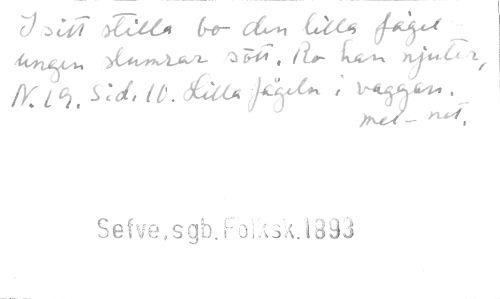 I sitt stilla bo den lilla fågel-
ungen slumrar sött. Ro han njuter,
N. 19. Sid. 10. Lilla fågeln i vaggan.
mel-not.
Sefve, sgb. Folksk. 1893